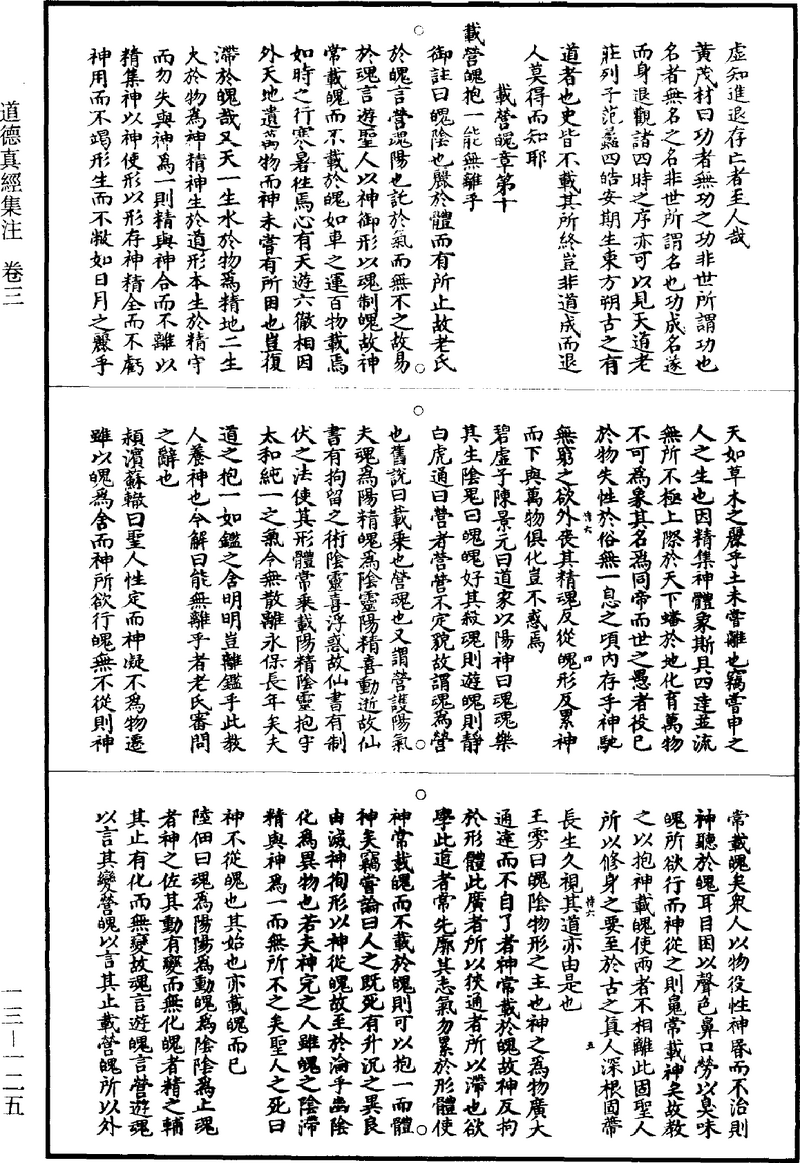 道德真經集注　卷三
一三—一二五
虛知進退存亡者至人哉
黃茂材曰功者無功之功非世所謂功也
名者無名之名非世所謂名也功成名遂
而身退觀諸四時之序亦可以見天道老
莊列子范蠡四皓安期生東方朔古之有
道者也史皆不載其所終豈非道成而退
人莫得而知耶
載營魄章第十
載營魄抱一能無離乎
御註曰魄陰也麗於體而有所止故老氏
於魄言營魂陽也託於氣而無不之故易
於魂言遊聖人以神御形以魂制魄故神
常載魄而不載於魄如車之運百物載焉
如時之行寒暑往焉心有天遊六徹相因
外天地遺萬物而神未嘗有所困也豈復
滯於魄哉又天一生水於物為精地二生
火於物為神精神生於道形本生於精守
而勿失與神為一則精與神合而不離以
精集神以神使形以形存神精全而不虧
神用而不竭形生而不敝如日月之麗乎
天如草木之麗乎土未嘗離也竊嘗申之
人之生也因精集神體象斯具四達並流
無所不極上際於天下蟠於地化育萬物
不可為象其名為同帝而世之愚者役己
於物失性於俗無一息之頃內存乎神馳
無窮之欲外喪其精魂反從魄形反累神
而下與萬物俱化豈不惑焉
碧虛子陳景元曰道家以陽神曰魂魂樂
其生陰鬼曰魄魄好其殺魂則遊魄則靜
白虎通曰營者營營不定貌故謂魂為營
也舊說曰載乘也營魂也又謂營護陽氣
夫魂為陽精魄為陰靈陽精喜動逝故仙
書有拘留之術陰靈喜浮惑故仙書有制
伏之法使其形體常乘載陽精陰靈抱守
太和純一之氣令無散離永保長年矣夫
道之抱一如鑑之含明明豈離鑑乎此教
人養神也今解曰能無離乎者老氏審問
之辭也
潁濱蘇轍曰聖人性定而神凝不為物遷
雖以魄為舍而神所欲行魄無不從則神
常載魄矣衆人以物役性神昬而不治則
神聽於魄耳目困以聲色鼻口勞以臭味
魄所欲行而神從之則魄常載神矣故教
之以抱神載魄使兩者不相離此固聖人
所以修身之要至於古之真人深根固蔕
長生久視其道亦由是也
王雱曰魄陰物形之主也神之為物廣大
通達而不自了者神常載於魄故神反拘
於形體此廣者所以狹通者所以滯也欲
學此道者常先廓其志氣勿累於形體使
神常載魄而不載於魄則可以抱一而體
神矣竊嘗論曰人之既死有升沉之異良
由滅神徇形以神從魄故至於淪乎幽陰
化為異物也若夫神完之人雖魄之陰滯
精與神為一而無所不之矣聖人之死曰
神不從魄也其始也亦載魄而已
陸佃曰魂為陽陽為動魄為陰陰為止魂
者神之佐其動有變而無化魄者精之輔
其止有化而無變故魂言遊魄言營遊魂
以言其變營魄以言其止載營魄所以外